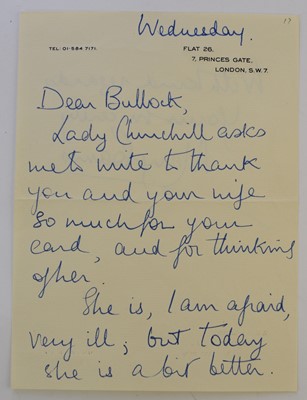 Wednesday.
TEL: 01-584 7171
FLAT 26,
7, PRINCES GATE,
LONDON, S.W.7.
Dear Bullock,
Lady Churchill asks
me to write to thank
you and your wife
so much for your
card, and for thinking
of her.
She is, I am afraid,
very ill; but today
she is a bit better.